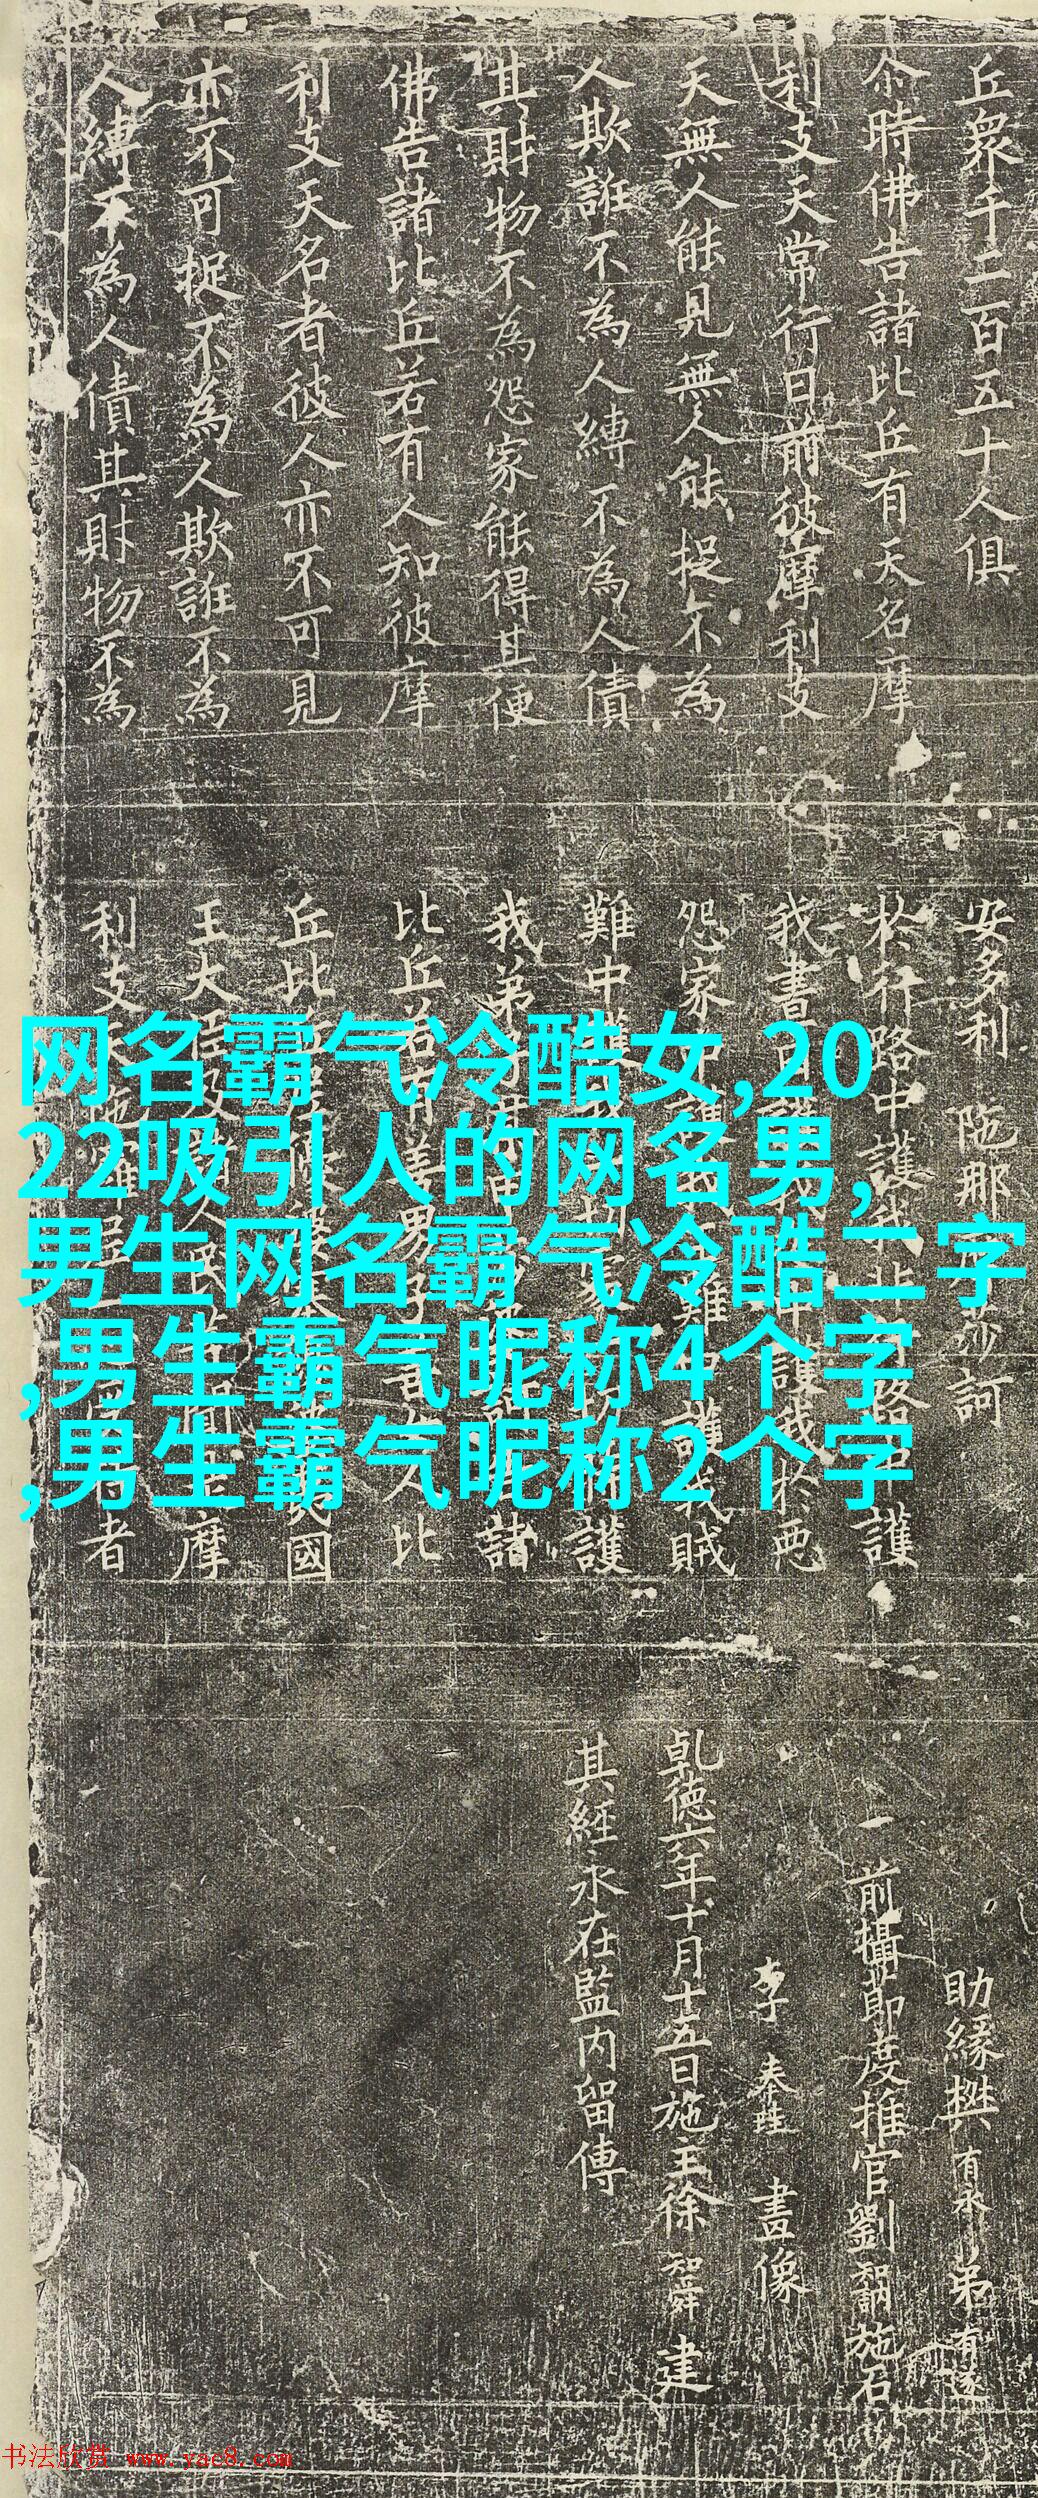 丘衆千二百五十人俱
尒時佛告諸比丘有天名摩
利支天常行日前彼摩利支
天無人能見無人能捉不為
人欺誑不為人縛不為人債
其財物不為怨家能得其便
佛告諸比丘若有人知彼摩
利支天名者彼人亦不可見
亦不可捉不為人欺誑不為
人縛不為人債其財物不為
安多利 陁那 訶
於行路中護我 護
我書日護 護我於
怨家 難 護我賊
難中護我 護
我弟子 諸
比丘若 善男子 人比
丘比 國
王大臣及諸人民 摩
利支 者
网名霸气冷酷女,20
22吸引人的网名男,
男生网名霸气冷酷二字
,男生霸气昵称4个字
,男生霸气昵称2个字
助緣樊有永弟有遂
一前攝節度推官劉 施石
李奉珪 畫像
乹德六年十月十五日施主徐 建
其經永在監内留傳
书法欣赏 www.yac8.com